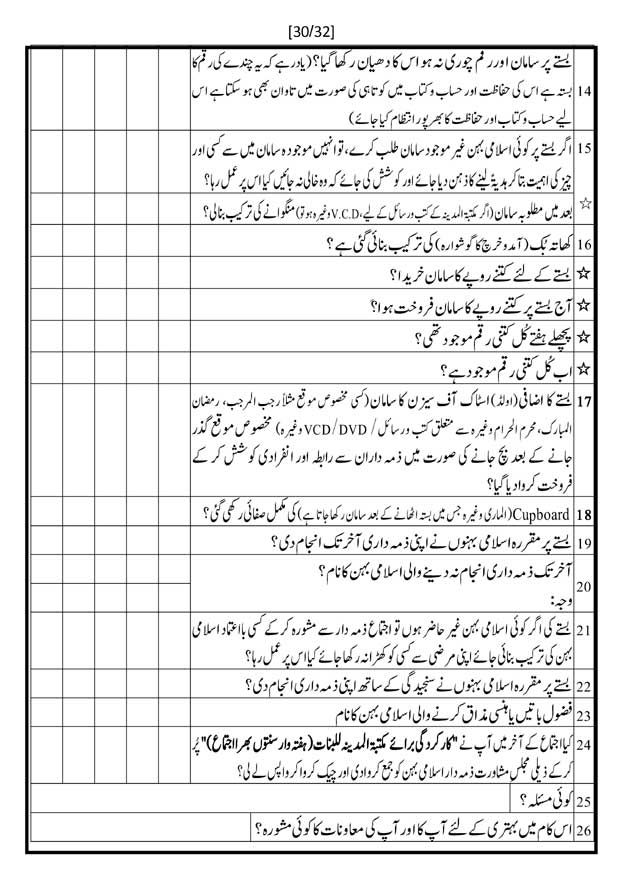 [30/32]
بستے پر سامان اور رقم چوری نہ ہو اس کا دھیان رکھا گیا؟ (یاد رہے کہ یہ چندے کی رقم کا
14 بستہ ہے اس کی حفاظت اور حساب و کتاب میں کوتاہی کی صورت میں تاوان بھی ہو سکتا ہے اس
لیے حساب و کتاب اور حفاظت کا بھر پور انتظام کیا جائے)
15 اگر بستے پر کوئی اسلامی بہن غیر موجود سامان طلب کرے، تو انہیں موجودہ سامان میں سے کسی اور
چیز کی اہمیت بتا کر ہدیۃً لینے کا ذہن دیا جائے اور کوشش کی جائے کہ وہ خالی نہ جائیں کیا اس پر عمل رہا؟
☆ بعد میں مطلوبہ سامان (اگر مکتبۃ المدینہ کے کتب و رسائل کے لیے، V.C.D وغیرہ ہو تو) منگوانے کی ترکیب بنالی؟
16 کھاتہ بُک (آمد و خرچ کا گوشوارہ) کی ترکیب بنائی گئی ہے؟
☆ بستے کے لئے کتنے روپے کا سامان خریدا؟
☆ آج بستے پر کتنے روپے کا سامان فروخت ہوا؟
☆ پچھلے ہفتے کُل کتنی رقم موجود تھی؟
☆ اب کُل کتنی رقم موجود ہے؟
17 بستے کا اضافی (اولڈ) اسٹاک آف سیزن کا سامان (کسی مخصوص موقع مثلاً رجب المرجب، رمضان
المبارک، محرم الحرام وغیرہ سے متعلق کتب و رسائل / VCD/DVD وغیرہ) مخصوص موقع گذر
جانے کے بعد بچ جانے کی صورت میں ذمہ داران سے رابطہ اور انفرادی کوشش کر کے
فروخت کروادیا گیا؟
18 Cupboard (الماری وغیرہ جس میں بستہ اٹھانے کے بعد سامان رکھا جاتا ہے) کی مکمل صفائی رکھی گئی؟
19 بستے پر مقررہ اسلامی بہنوں نے اپنی ذمہ داری آخر تک انجام دی؟
آخر تک ذمہ داری انجام نہ دینے والی اسلامی بہن کا نام؟
20
وجہ:
21 بستے کی اگر کوئی اسلامی بہن غیر حاضر ہوں تو اجتماع ذمہ دار سے مشورہ کر کے کسی بااعتماد اسلامی
بہن کی ترکیب بنائی جائے اپنی مرضی سے کسی کو کھڑا نہ رکھا جائے کیا اس پر عمل رہا؟
22 بستے پر مقررہ اسلامی بہنوں نے سنجیدگی کے ساتھ اپنی ذمہ داری انجام دی؟
23 فضول باتیں یا ہنسی مذاق کرنے والی اسلامی بہن کا نام
24 کیا اجتماع کے آخر میں آپ نے "کارکردگی برائے مکتبۃ المدینہ للبنات (ہفتہ وار سنتوں بھرا اجتماع)" پُر
کر کے ذیلی مجلس مشاورت ذمہ دار اسلامی بہن کو جمع کروادی اور چیک کروا کر واپس لے لی؟
25 کوئی مسئلہ؟
26 اس کام میں بہتری کے لئے آپ کا اور آپ کی معاونات کا کوئی مشورہ؟